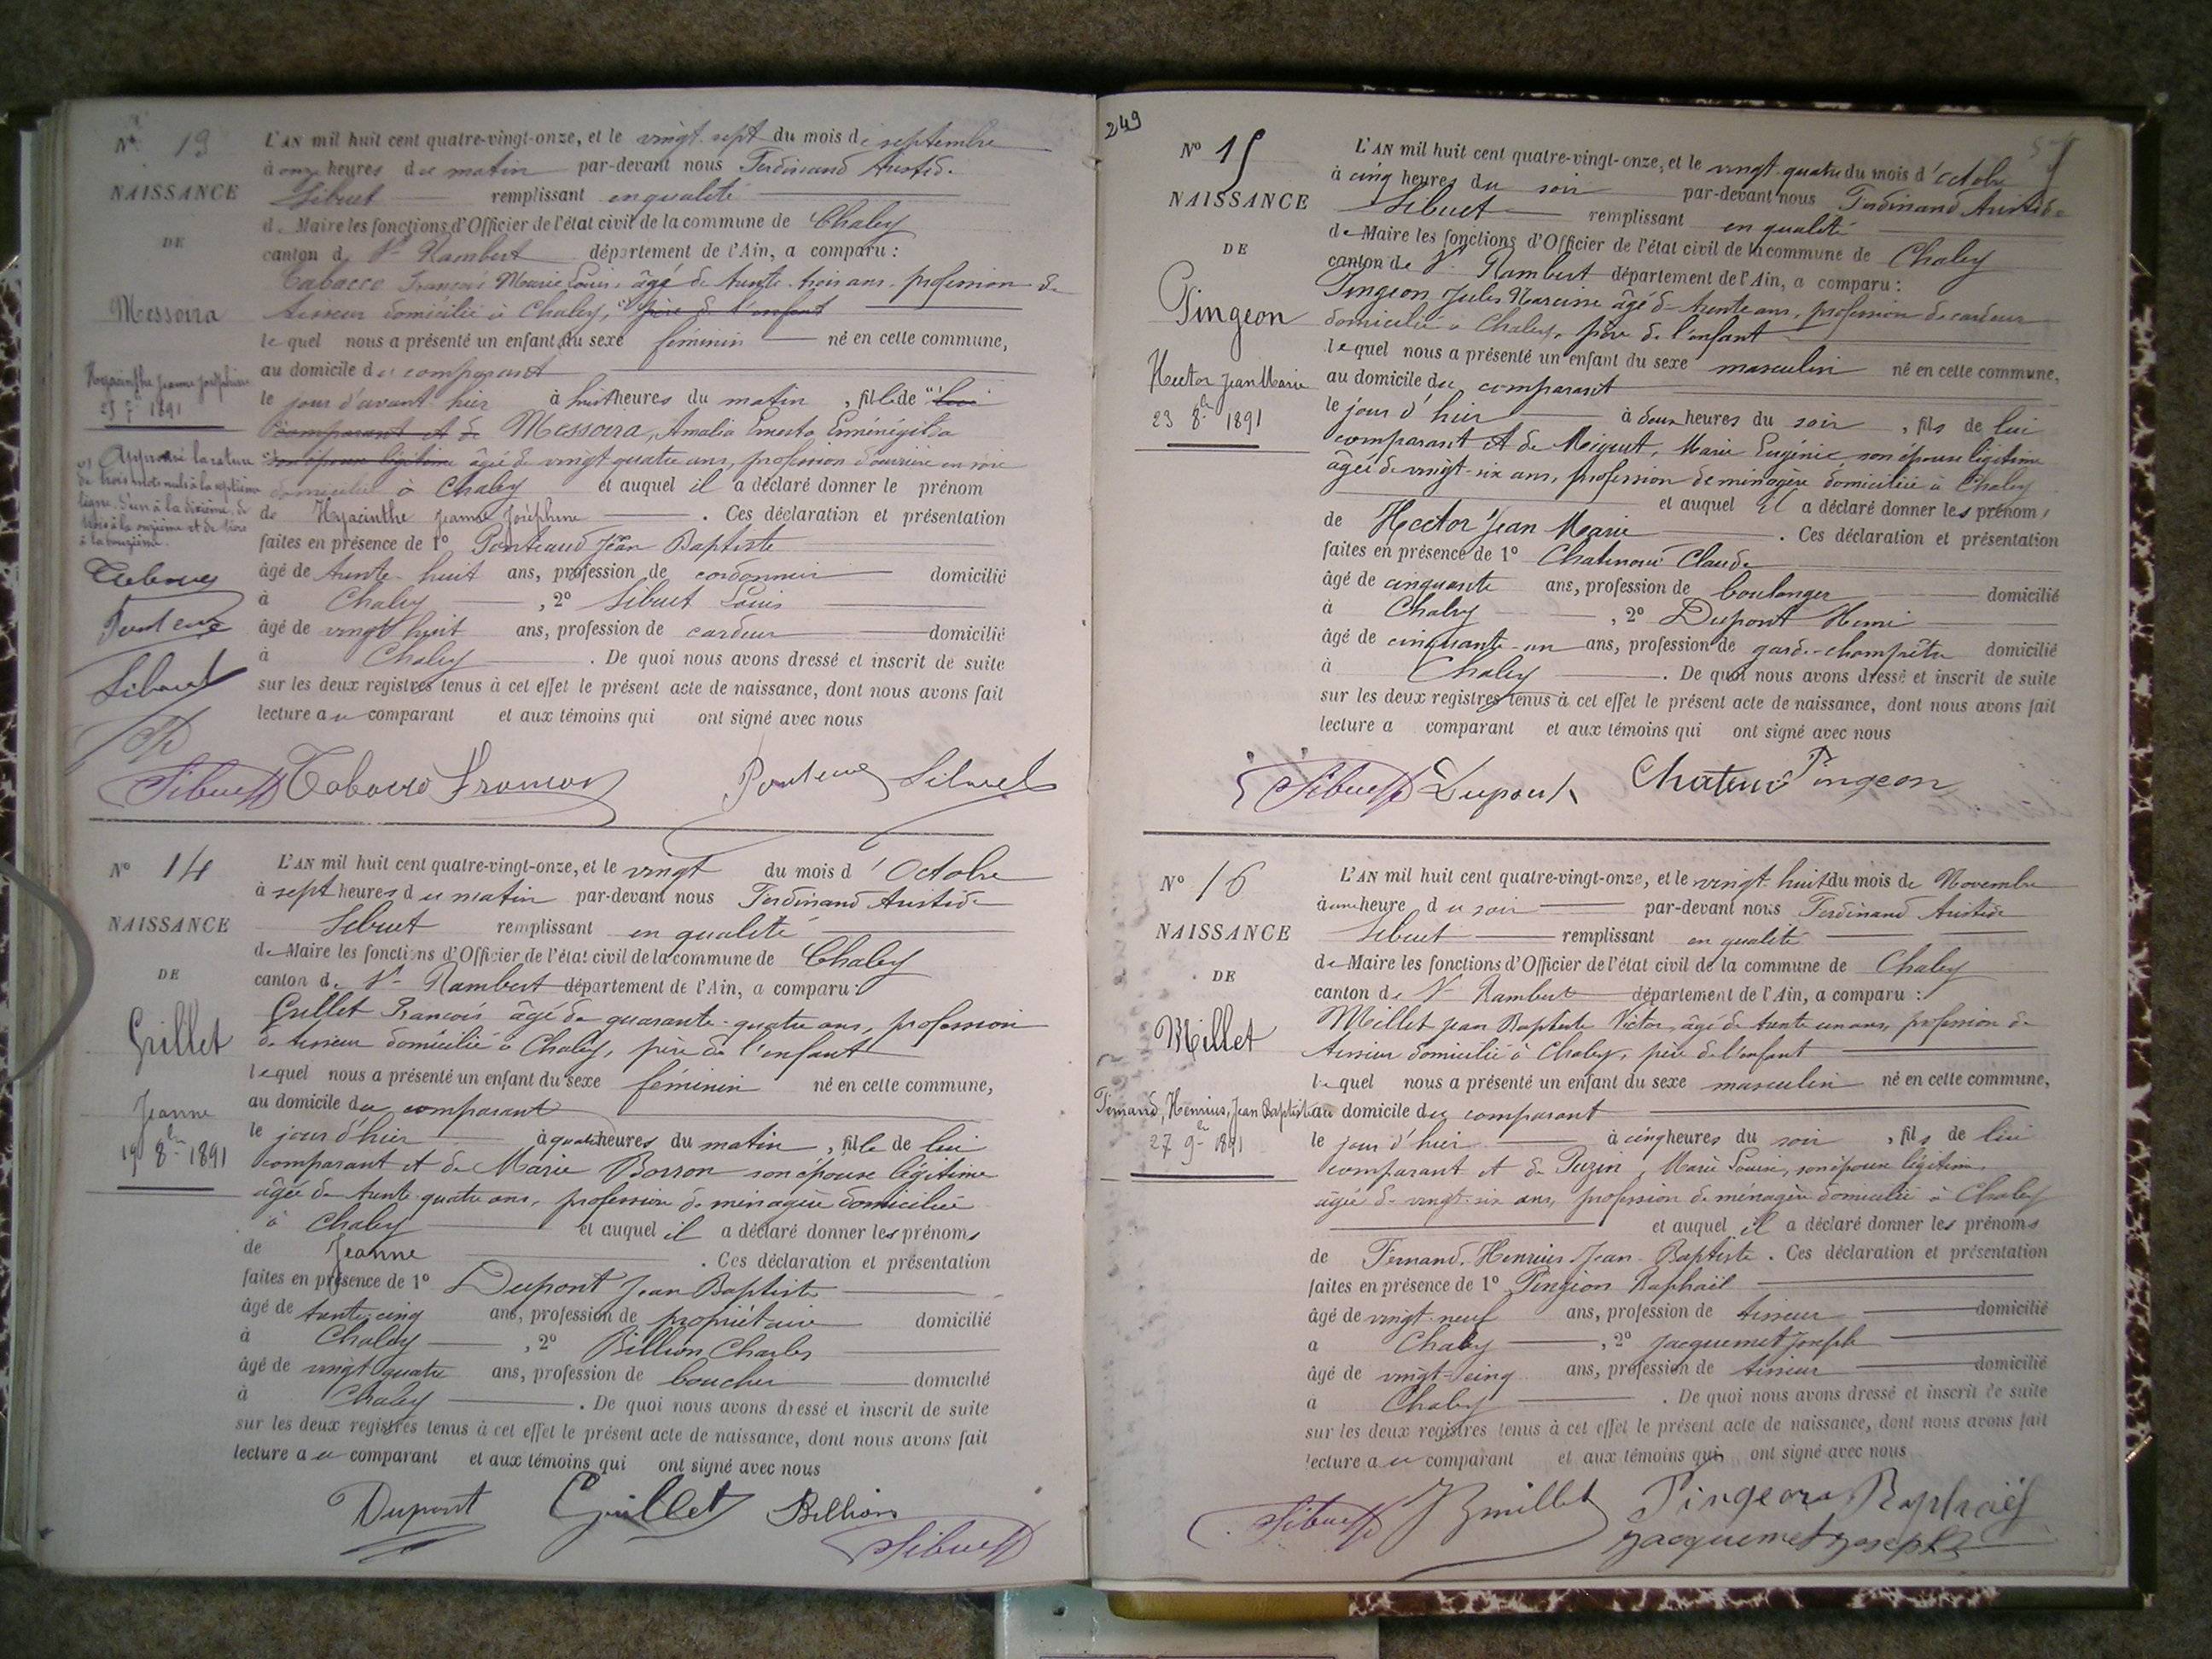 Nº 13
NAISSANCE
DE
Messoira
Hyacinthe Jeanne Joséphine
25 7bre 1891
Approuvé la rature
de trois mots nuls à la septième
ligne, d'un à la dixième, de
trois à la onzième et de trois
à la douzième.
L'AN mil huit cent quatre-vingt-onze, et le vingt sept du mois de septembre
à onze heures du matin par-devant nous Ferdinand Aristide
Sibuet remplissant en qualité
de Maire les fonctions d'Officier de l'état civil de la commune de Chaley
canton de St Rambert département de l'Ain, a comparu :
Tabacco François Marie Louis, âgé de trente trois ans, profession de
tisseur domicilié à Chaley, père de l'enfant
lequel nous a présenté un enfant du sexe féminin né en cette commune,
au domicile du comparant
le jour d'avant hier à huit heures du matin, fille de lui
comparant et de Messoira, Amalia Ernesta Erménégilda
son épouse légitime âgée de vingt quatre ans, profession d'ouvrière en soie
domiciliée à Chaley et auquel il a déclaré donner le prénom
de Hyacinthe Jeanne Joséphine. Ces déclaration et présentation
faites en présence de 1º Ponteaud Jean Baptiste
âgé de trente-huit ans, profession de cordonnier domicilié
à Chaley, 2º Sibuet Louis
âgé de vingt huit ans, profession de cardeur domicilié
à Chaley. De quoi nous avons dressé et inscrit de suite
sur les deux registres tenus à cet effet le présent acte de naissance, dont nous avons fait
lecture au comparant et aux témoins qui ont signé avec nous
Sibuet Tabacco François Sibuet
Nº 14
NAISSANCE
DE
Grillet
Jeanne
19 8bre 1891
L'AN mil huit cent quatre-vingt-onze, et le vingt du mois d'Octobre
à sept heures du matin par-devant nous Ferdinand Aristide
Sibuet remplissant en qualité
de Maire les fonctions d'Officier de l'état civil de la commune de Chaley
canton de St Rambert département de l'Ain, a comparu :
Grillet François âgé de quarante-quatre ans, profession
de tisseur domicilié à Chaley, père de l'enfant
lequel nous a présenté un enfant du sexe féminin né en cette commune,
au domicile du comparant
le jour d'hier à quatre heures du matin, fille de lui
comparant et de Marie Borron son épouse légitime
âgée de trente-quatre ans, profession de ménagère domiciliée
à Chaley et auquel il a déclaré donner les prénoms
de Jeanne. Ces déclaration et présentation
faites en présence de 1º Dupont Jean Baptiste
âgé de trente-cinq ans, profession de propriétaire domicilié
à Chaley, 2º Billion Charles
âgé de vingt quatre ans, profession de boucher domicilié
à Chaley. De quoi nous avons dressé et inscrit de suite
sur les deux registres tenus à cet effet le présent acte de naissance, dont nous avons fait
lecture au comparant et aux témoins qui ont signé avec nous
Dupont Grillet Billion
Sibuet
249
Nº 15
NAISSANCE
DE
Pingeon
Hector Jean Marie
23 8bre 1891
L'AN mil huit cent quatre-vingt-onze, et le vingt-quatre du mois d'octobre
à cinq heures du soir par-devant nous Ferdinand Aristide
Sibuet remplissant en qualité
de Maire les fonctions d'Officier de l'état civil de la commune de Chaley
canton de St Rambert département de l'Ain, a comparu :
Pingeon Jules Narcisse âgé de trente ans, profession de cardeur
domicilié à Chaley, père de l'enfant
lequel nous a présenté un enfant du sexe masculin né en cette commune,
au domicile du comparant
le jour d'hier à deux heures du soir, fils de lui
comparant et de Marie Eugénie, son épouse légitime
âgée de vingt-six ans, profession de ménagère domiciliée à Chaley
et auquel il a déclaré donner les prénoms
de Hector Jean Marie. Ces déclaration et présentation
faites en présence de 1º Claude
âgé de cinquante ans, profession de boulanger domicilié
à Chaley, 2º Dupont Henri
âgé de cinquante-un ans, profession de garde-champêtre domicilié
à Chaley. De quoi nous avons dressé et inscrit de suite
sur les deux registres tenus à cet effet le présent acte de naissance, dont nous avons fait
lecture a comparant et aux témoins qui ont signé avec nous
Sibuet Dupont Pingeon
Nº 16
NAISSANCE
DE
Millet
Fernand, Henrius, Jean Baptiste
27 9bre 1891
L'AN mil huit cent quatre-vingt-onze, et le vingt-huit du mois de Novembre
à une heure du soir par-devant nous Ferdinand Aristide
Sibuet remplissant en qualité
de Maire les fonctions d'Officier de l'état civil de la commune de Chaley
canton de St Rambert département de l'Ain, a comparu :
Millet Jean Baptiste Victor, âgé de trente un ans, profession de
tisseur domicilié à Chaley, père de l'enfant
lequel nous a présenté un enfant du sexe masculin né en cette commune,
au domicile du comparant
le jour d'hier à cinq heures du soir, fils de lui
comparant et de Puzin, Marie Louise, son épouse légitime,
âgée de vingt-six ans, profession de ménagère domiciliée à Chaley
et auquel il a déclaré donner les prénoms
de Fernand, Henrius, Jean-Baptiste. Ces déclaration et présentation
faites en présence de 1º Pingeon Raphaël
âgé de vingt-neuf ans, profession de tisseur domicilié
à Chaley, 2º Jacquemet Joseph
âgé de vingt-cinq ans, profession de tisseur domicilié
à Chaley. De quoi nous avons dressé et inscrit de suite
sur les deux registres tenus à cet effet le présent acte de naissance, dont nous avons fait
lecture au comparant et aux témoins qui ont signé avec nous
Sibuet JB millet Pingeon Raphaël
Jacquemet Joseph